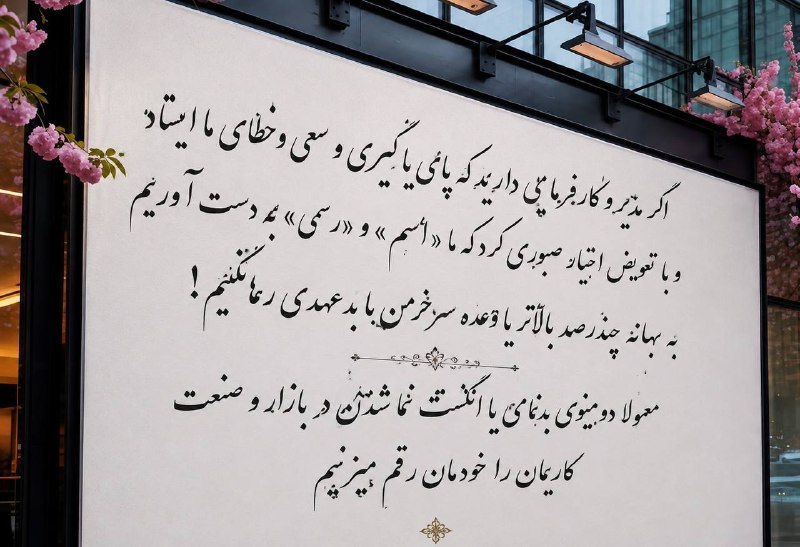 اگر مدیر و کارفرمایی دارید که پای یادگیری و سعی و خطای ما ایستاد
و با تعویض اختیار صبوری کرد که ما «اسم» و «رسمی» به دست آوریم
به بهانه چندرصد بالاتر یا وعده سرخرمن با بدعهدی رها نکنیم!
معمولا دومینوی بدنامی یا انگشت نما شدن در بازار و صنعت
کاریمان را خودمان رقم میزنیم